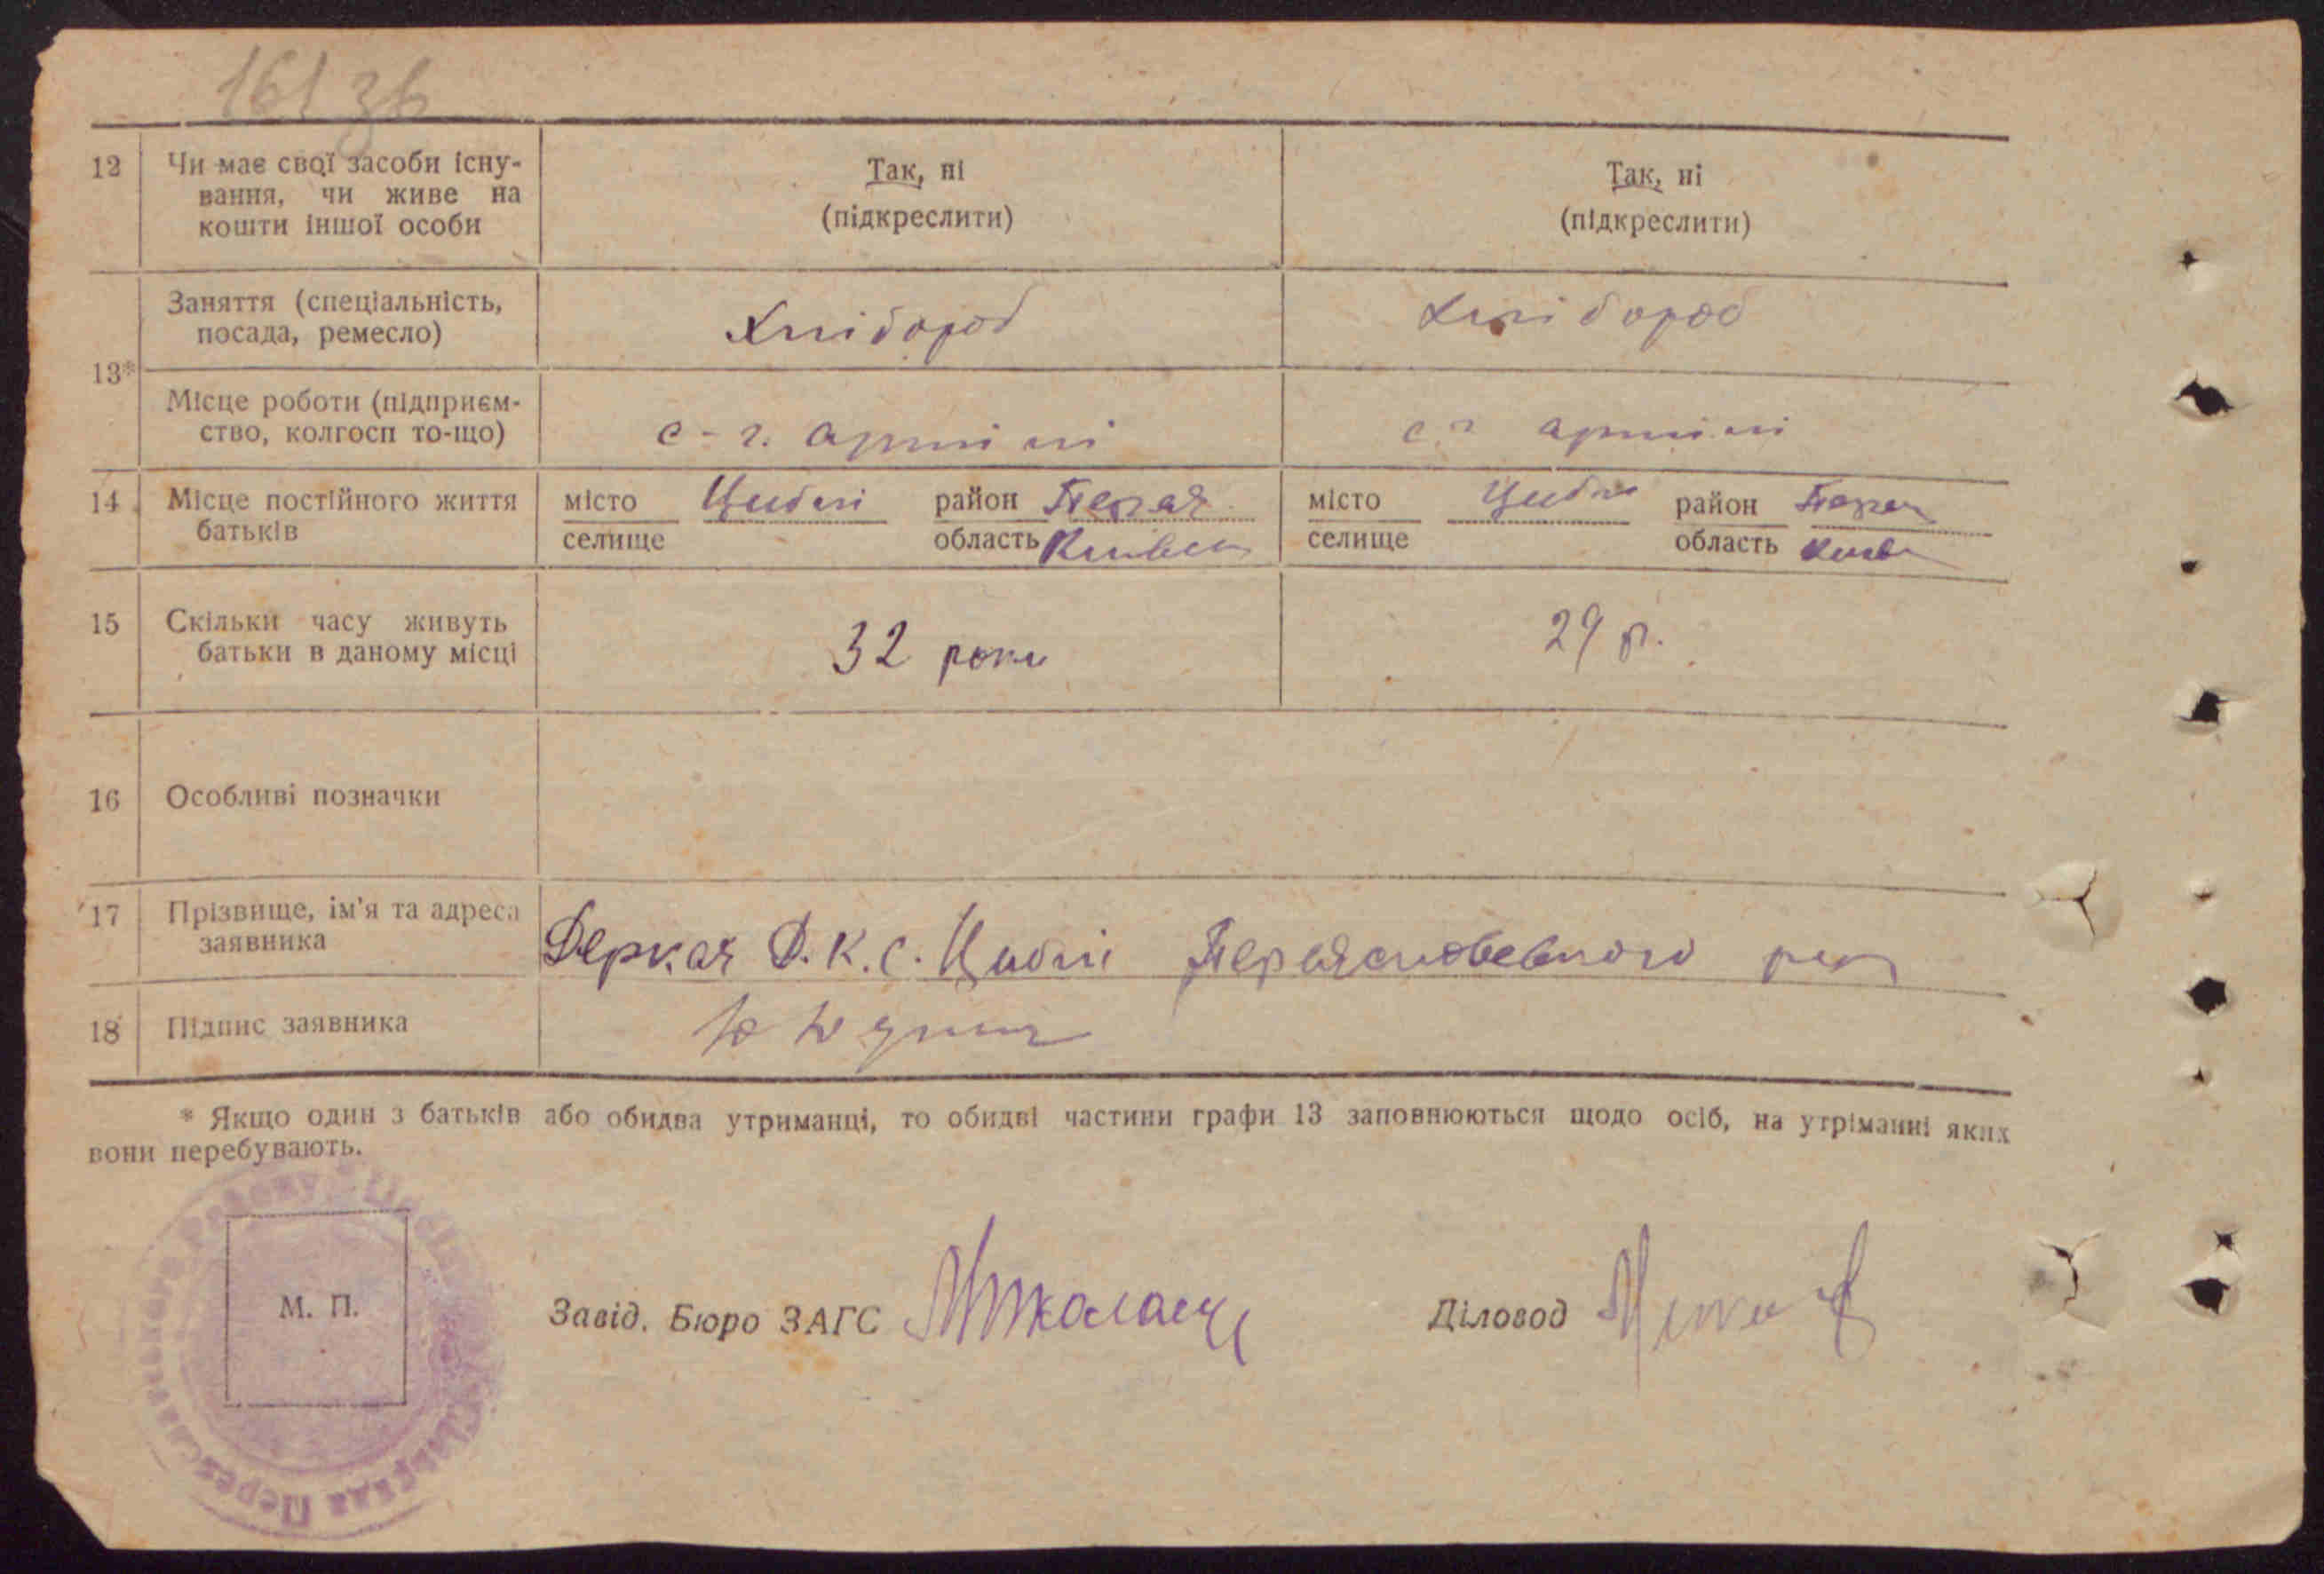 161 зв
12 Чи має свої засоби існу-
вання, чи живе на
кошти іншої особи
Так, ні
(підкреслити)
Так, ні
(підкреслити)
13*
Заняття (спеціальність,
посада, ремесло)
Хлібороб
Хлібороб
Місце роботи (підприєм-
ство, колгосп то-що)
с-г. артілі
с г артілі
14 Місце постійного життя
батьків
місто Циблі район Переяс.
селище область Київськ
місто Циблі район Переяс
селище область Київ
15 Скільки часу живуть
батьки в даному місці
32 роки
29 р.
16 Особливі позначки
17 Прізвище, ім'я та адреса
заявника
Деркач Д. К. с. Циблі Переяславського рай
18 Підпис заявника
* Якщо один з батьків або обидва утриманці, то обидві частини графи 13 заповнюються щодо осіб, на утріманні яких
вони перебувають.
М. П.
Завід. Бюро ЗАГС
Діловод